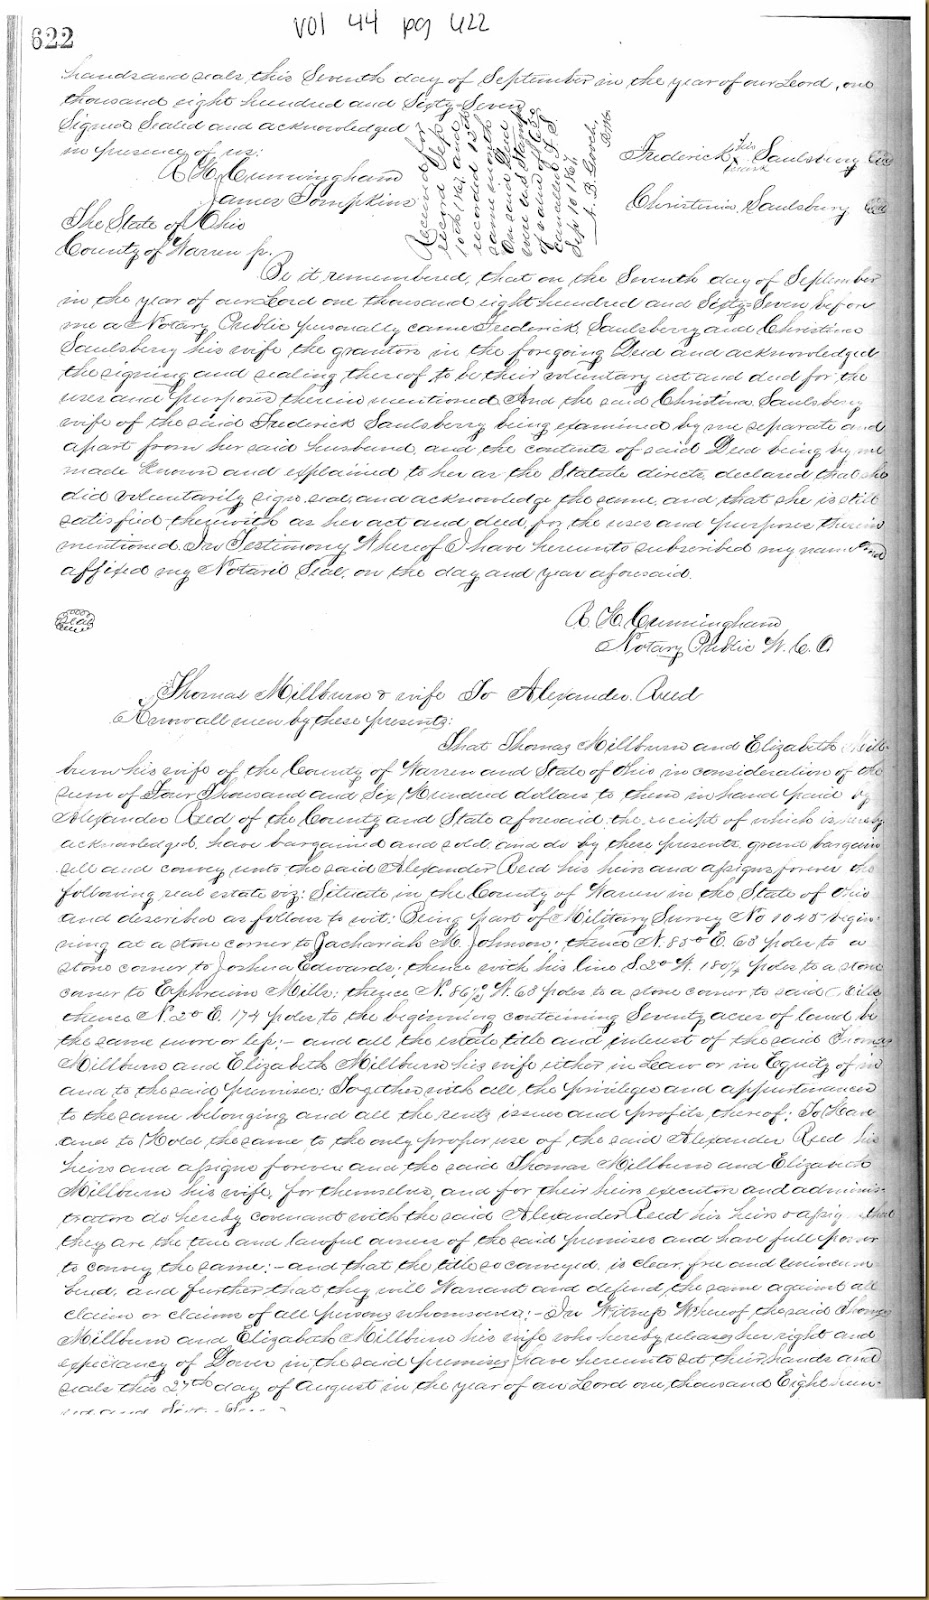 622
vol 44 pg 422
hands and seals, this Seventh day of September in the year of our Lord, one
thousand eight hundred and Sixty-Seven
Signed Sealed and acknowledged
in presence of us:
R. H. Cunningham
James Tompkins
Received for
record Sept
10th 1867 and
recorded 13th
same month
On said Deed
were and Stamps
Cancelled F. S.
Sep 10 1867
Frederick his x mark Saulsberry
Christenia Saulsbury
The State of Ohio
County of Warren ss.
Be it remembered, that on the Seventh day of September
in the year of our Lord one thousand eight hundred and Sixty-Seven before
me a Notary Public personally came Frederick Saulsberry and Christina
Saulsberry his wife the grantors in the foregoing Deed and acknowledged
the signing and sealing thereof to be their voluntary act and deed for the
uses and purposes therein mentioned And the said Christina Saulsberry
wife of the said Frederick Saulsberry being examined by me separate and
apart from her said husband, and the contents of said Deed being by me
made Known and explained to her as the Statute directs, declared that she
did voluntarily sign, seal, and acknowledge the same, and that she is still
satisfied therewith as her act and deed, for the uses and purposes therein
mentioned. In Testimony Whereof I have hereunto subscribed my name and
affixed my Notaril Seal, on the day and year aforesaid.
Seal
R. H. Cunningham
Notary Public W. C. O.
Thomas Millburn & wife To Alexander Reed
Know all men by these presents:
That Thomas Millburn and Elizabeth Mill-
burn his wife of the County of Warren and State of Ohio, in consideration of the
sum of Four Thousand and Six Hundred dollars to them in hand paid by
Alexander Reed of the County and State aforesaid, the receipt of which is hereby
acknowledged, have bargained and sold, and do by these presents, grand bargain
sell and convey unto the said Alexander Reed his heirs and assigns forever the
following real estate viz: Situate in the County of Warren in the State of Ohio
and described as follows to wit: Being part of Military Survey No 1045 begin-
ning at a stone corner to Zachariah M. Johnson; thence N. 85° E. 63 poles to a
stone corner to Joshua Edwards; thence with his line S. 2° W. 180 poles to a stone
corner to Ephraim Mills; thence N. 86 1/2° W. 63 poles to a stone corner to said Mills
thence N. 2° E. 174 poles to the beginning containing Seventy acres of land be
the same more or less;- and all the estate, title and interest of the said Thomas
Millburn and Elizabeth Millburn his wife either in Law or in Equity of in
and to the said premises; Together with all the privileges and appurtenances
to the same belonging and all the rents issues and profits thereof; To Have
and to Hold the same to the only proper use of the said Alexander Reed his
heirs and assigns forever and the said Thomas Millburn and Elizabeth
Millburn his wife, for themselves, and for their heirs executors and adminis-
trators do hereby covenant with the said Alexander Reed his heirs & assigns that
they are the true and lawful owners of the said premises and have full power
to convey the same;- and that the title so conveyed, is clear, free and unincum-
bered, and further, that they will Warrant and defend the same against all
claim or claims of all persons whomsoever;- In Witness Whereof the said Thomas
Millburn and Elizabeth Millburn his wife who hereby releases her right and
expectancy of Dower in the said premises have hereunto set their hands and
seals this 27th day of August in the year of our Lord one, thousand Eight hun-